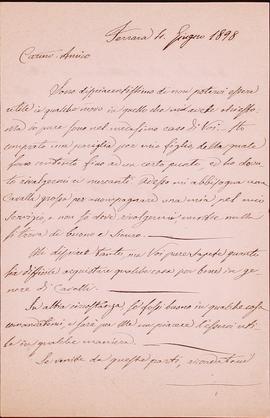 Ferrara 4. Giugno 1898
Carmo Amico
Sono dispiacentissimo di non potervi essere
utile in qualche modo in quello che mi avete chiesto.
Ma io pure sono nel medesimo caso di Voi. Ho
comprato una pariglia per mio figlio della quale
sono contento fino ad un certo punto, e ho dovu
to rivolgermi ai mercanti. Adesso mi abbisogna una
Cavalla grossa per accompagnare una mia pel mio
Servizio, e non so dove rivolgermi mentre nulla
si trova di buono e sicuro.
Mi dispiace tanto, ma Voi pure sapete quanto
sia difficile acquistare qualche cosa per bene in ge-
nere di Cavalli.
In altra circostanza, se fossi buono in qualche cosa
comandatemi, e sarà per me un piacere l'esservi uti
le in qualche maniera.
Se venite da queste parti, ricordatevi